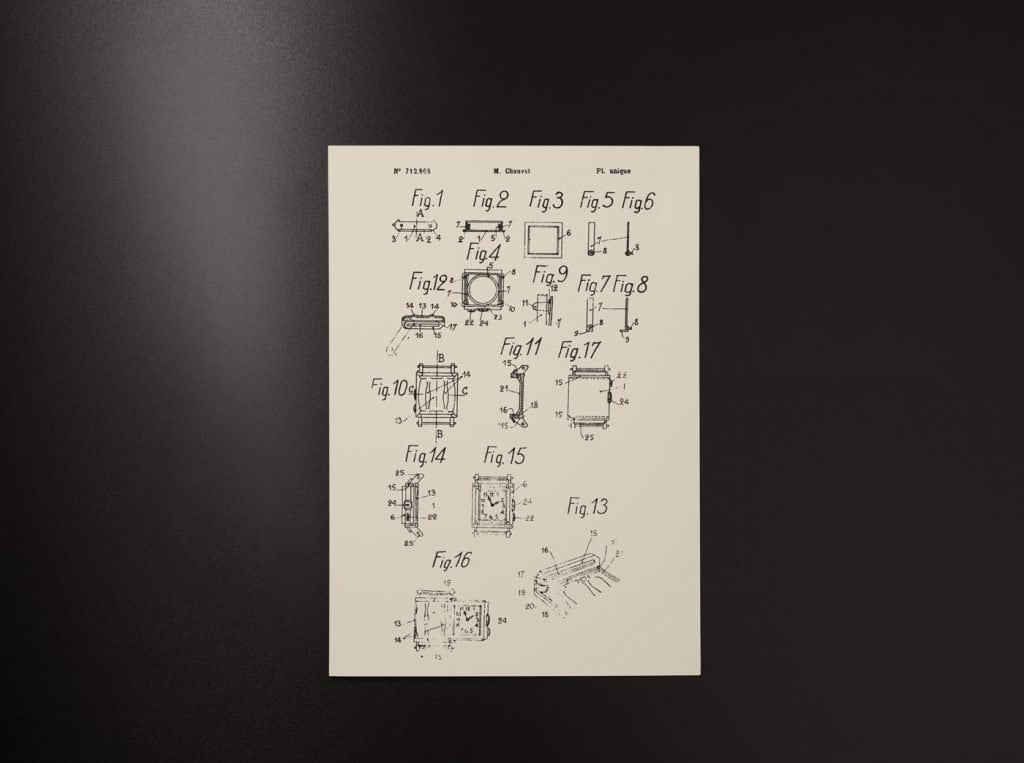 Nº 712.868 M. Chauvot Pl. unique
Fig.1 Fig.2 Fig.3 Fig.5 Fig.6
A
7 7 7
6
3 1 A 2 4 2 1 5 2 8 8
Fig.4
5
Fig.12 8 8 Fig.9 Fig.7 Fig.8
7 7 12
14 13 14 10 10 11 7
22 24 23 1 7 8 8
16 15 17 9 9
Fig.11 Fig.17
B 15 22
Fig.10 c 14 c 15 1
21 24
13 16 18 15
B 15 25
Fig.14 Fig.15
25
15 13 6
24 1 24
6 22 22
25
Fig.13
15
16 5
Fig.16 2
17
15 19
20
13 24 18
14
15